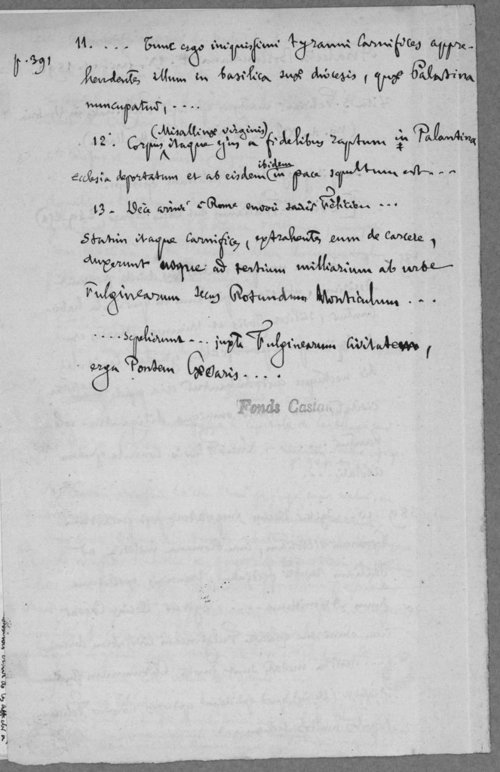 p. 391
11. . . . Tunc ergo iniquissimi tyranni Carnifices appre-
hendentes illum in basilica suæ diocesis, quæ Palatina
nuncupatur, . . . .
12. Corpus (Misallinæ virginis) itaque ejus a fidelibus raptum in Palantina
ecclesia deportatum et ab eisdem ibidem in pace sepultum est . . .
13. Felicien . . .
Statim itaque Carnifices, extrahentes eum de carcere,
duxerunt usque ad tertium milliarium ab urbe
Fulginearum secus Rotundum Monticulum . . .
. . . . sepelierunt . . . juxta Fulginearum Civitatem,
erga Pontem Cæsaris . . . .
Fonds Castan